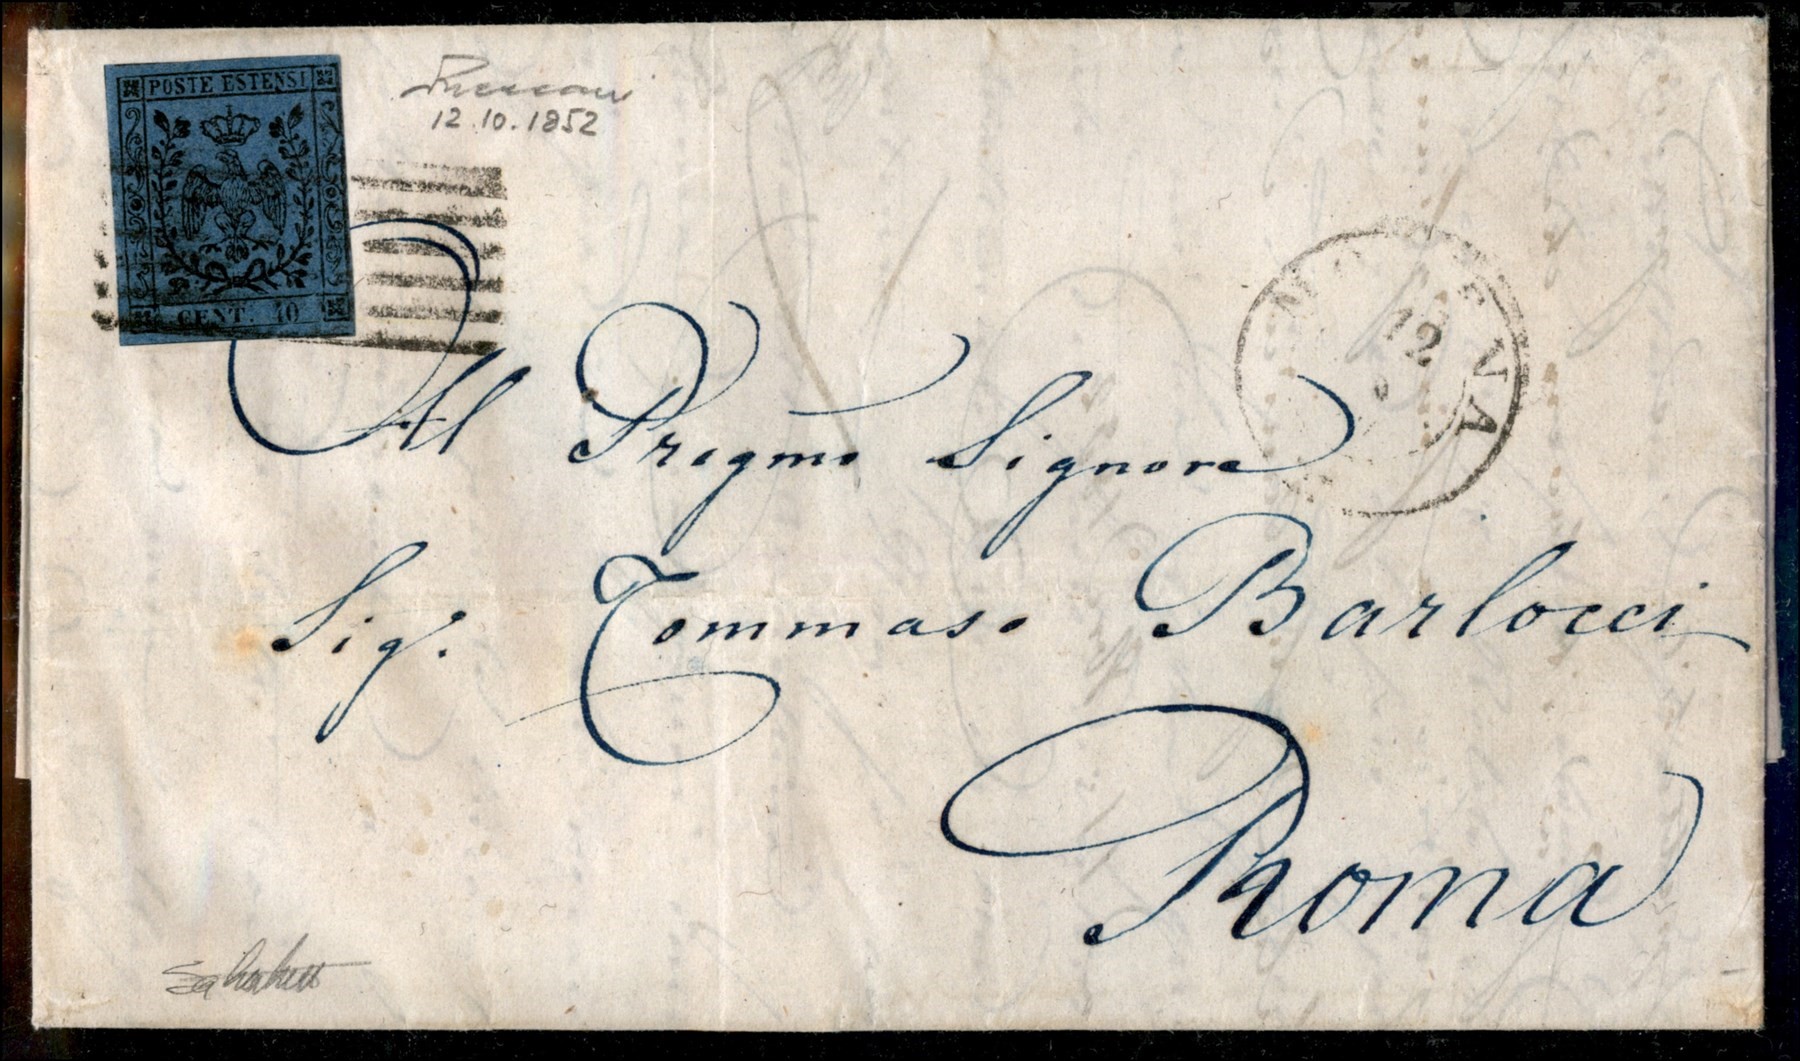 POSTE ESTENSI
CENT. 40
12.10.1852
MODENA
12
Al Pregmo Signore
Sig. Tommaso Barlocci
Roma